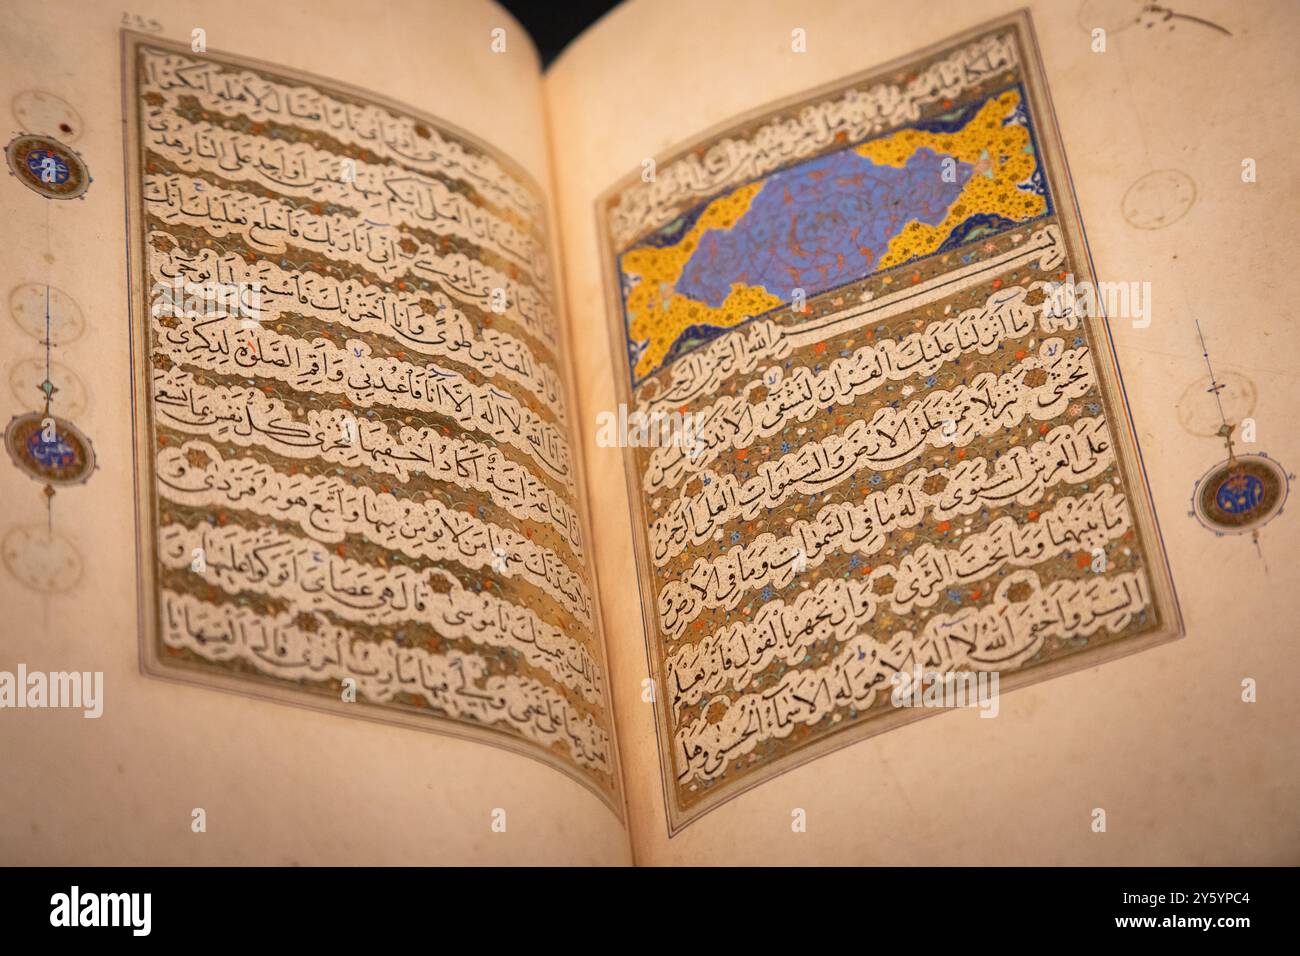 بِسْمِ
اللهِ الرَّحْمٰنِ الرَّحِيمِ
طه مَا أَنْزَلْنَا عَلَيْكَ الْقُرْآنَ لِتَشْقَى إِلَّا تَذْكِرَةً لِمَنْ
يَخْشَى تَنْزِيلًا مِمَّنْ خَلَقَ الْأَرْضَ وَالسَّمَوَاتِ الْعُلَى الرَّحْمَنُ
عَلَى الْعَرْشِ اسْتَوَى لَهُ مَا فِي السَّمَوَاتِ وَمَا فِي الْأَرْضِ وَ
مَا بَيْنَهُمَا وَمَا تَحْتَ الثَّرَى وَإِنْ تَجْهَرْ بِالْقَوْلِ فَإِنَّهُ يَعْلَمُ
السِّرَّ وَأَخْفَى اللهُ لَا إِلَهَ إِلَّا هُوَ لَهُ الْأَسْمَاءُ الْحُسْنَى وَهَلْ
مُوسَى إِذْ رَأَى نَارًا فَقَالَ لِأَهْلِهِ امْكُثُوا
نَارًا لَعَلِّي آتِيكُمْ مِنْهَا بِقَبَسٍ أَوْ أَجِدُ عَلَى النَّارِ هُدًى
فَلَمَّا أَتَاهَا نُودِيَ يَا مُوسَى إِنِّي أَنَا رَبُّكَ فَاخْلَعْ نَعْلَيْكَ إِنَّكَ
بِالْوَادِ الْمُقَدَّسِ طُوًى وَأَنَا اخْتَرْتُكَ فَاسْتَمِعْ لِمَا يُوحَى
إِنَّنِي أَنَا اللهُ لَا إِلَهَ إِلَّا أَنَا فَاعْبُدْنِي وَأَقِمِ الصَّلٰوةَ لِذِكْرِي
إِنَّ السَّاعَةَ آتِيَةٌ أَكَادُ أُخْفِيهَا لِتُجْزَى كُلُّ نَفْسٍ بِمَا تَسْعَى
فَلَا يَصُدَّنَّكَ عَنْهَا مَنْ لَا يُؤْمِنُ بِهَا وَاتَّبَعَ هَوَاهُ فَتَرْدَى وَ
مَا تِلْكَ بِيَمِينِكَ يَا مُوسَى قَالَ هِيَ عَصَايَ أَتَوَكَّؤُا عَلَيْهَا وَ
أَهُشُّ بِهَا عَلَى غَنَمِي وَلِيَ فِيهَا مَآرِبُ أُخْرَى قَالَ أَلْقِهَا يَا
alamy
Image ID: 2Y5YPC4
www.alamy.com